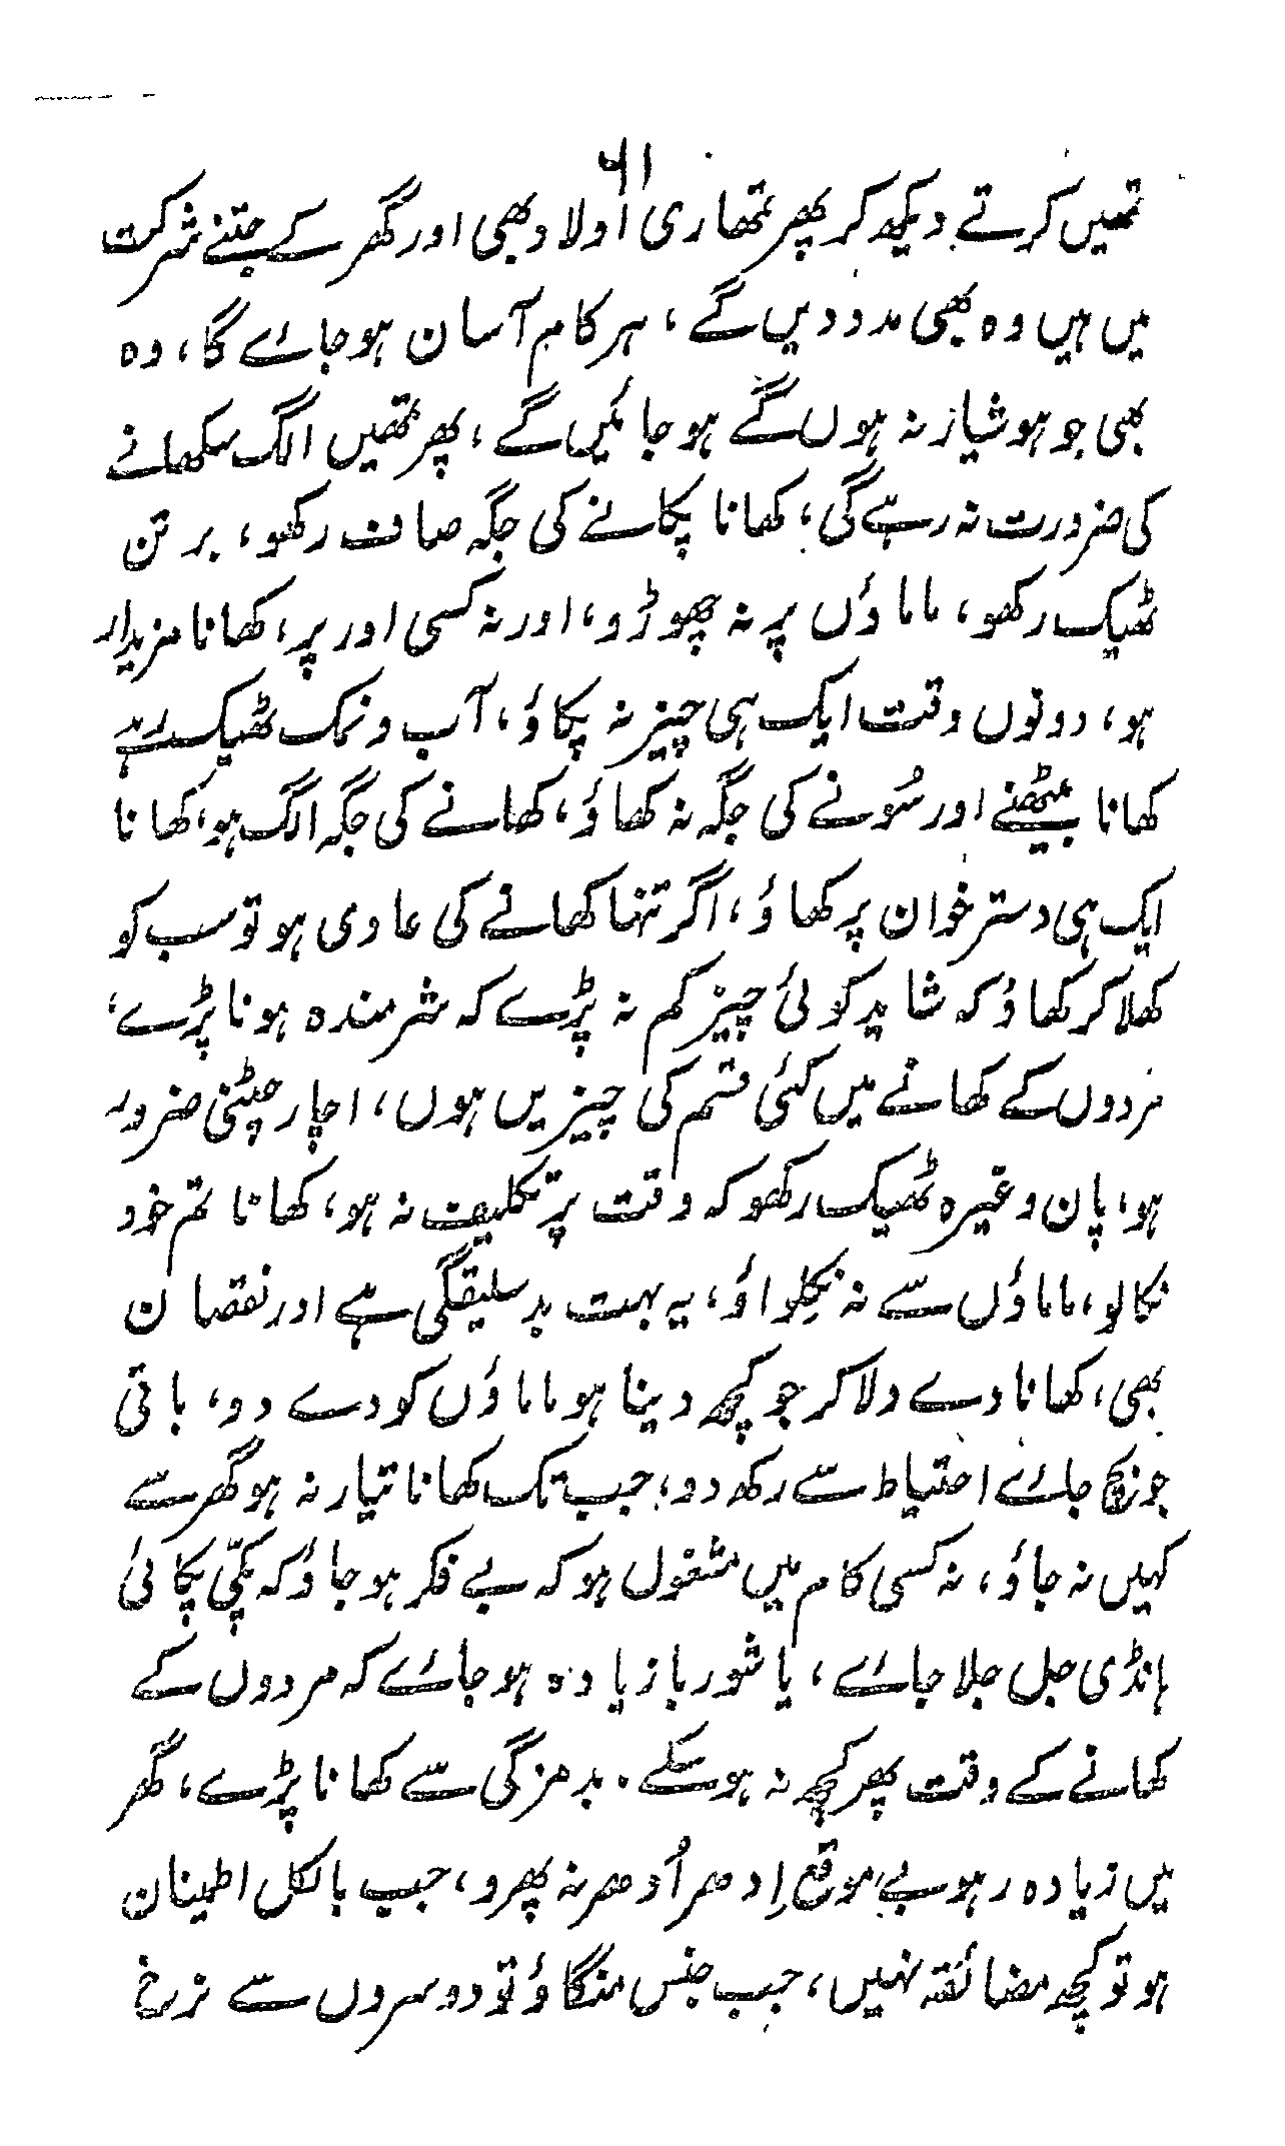 ۶۱
تمہیں کرتے دیکھ کر پھر تمھاری اولاد بھی اور گھر کے جتنے شرکت
میں ہیں وہ بھی مدد دیں گے، ہر کام آسان ہو جائے گا، وہ
بھی جو ہوشیار نہ ہوں گے ہو جائیں گے، پھر تمھیں الگ سکھانے
کی ضرورت نہ رہے گی، کھانا پکانے کی جگہ صاف رکھو، برتن
ٹھیک رکھو، ماماؤں پر نہ چھوڑو، اور نہ کسی اور پر، کھانا مزیدار
ہو، دونوں وقت ایک ہی چیز نہ پکاؤ، آب و نمک ٹھیک رہے
کھانا بیٹھنے اور سُونے کی جگہ نہ کھاؤ، کھانے کی جگہ الگ ہو، کھانا
ایک ہی دسترخوان پر کھاؤ، اگر تنہا کھانے کی عادی ہو تو سب کو
کھلا کر کھاؤ کہ شاید کوئی چیز کم نہ پڑے کہ شرمندہ ہونا پڑے،
مردوں کے کھانے میں کئی قسم کی چیزیں ہوں، اچار چٹنی ضرور
ہو، پان وغیرہ ٹھیک رکھو کہ وقت پر تکلیف نہ ہو، کھانا تم خود
نکالو، ماماؤں سے نہ نکِلواؤ، یہ بہت بدسلیقگی ہے اور نقصان
بھی، کھانا دے دلا کر جو کچھ دینا ہو ماماؤں کو دے دو، باقی
جو بچ جائے احتیاط سے رکھ دو، جب تک کھانا تیار نہ ہو گھر سے
کہیں نہ جاؤ، نہ کسی کام میں مشغول ہو کہ بے فکر ہو جاؤ کہ پکّی پکائی
ہانڈی جل جلا جائے، یا شوربا زیادہ ہو جائے کہ مردوں کے
کھانے کے وقت پھر کچھ نہ ہو سکے۔ بدمزگی سے کھانا پڑے، گھر
میں زیادہ رہو بے موقع اِدھر اُدھر نہ پھرو، جب بالکل اطمینان
ہو تو کچھ مضائقہ نہیں، جب جنس منگاؤ تو دوسروں سے نرخ